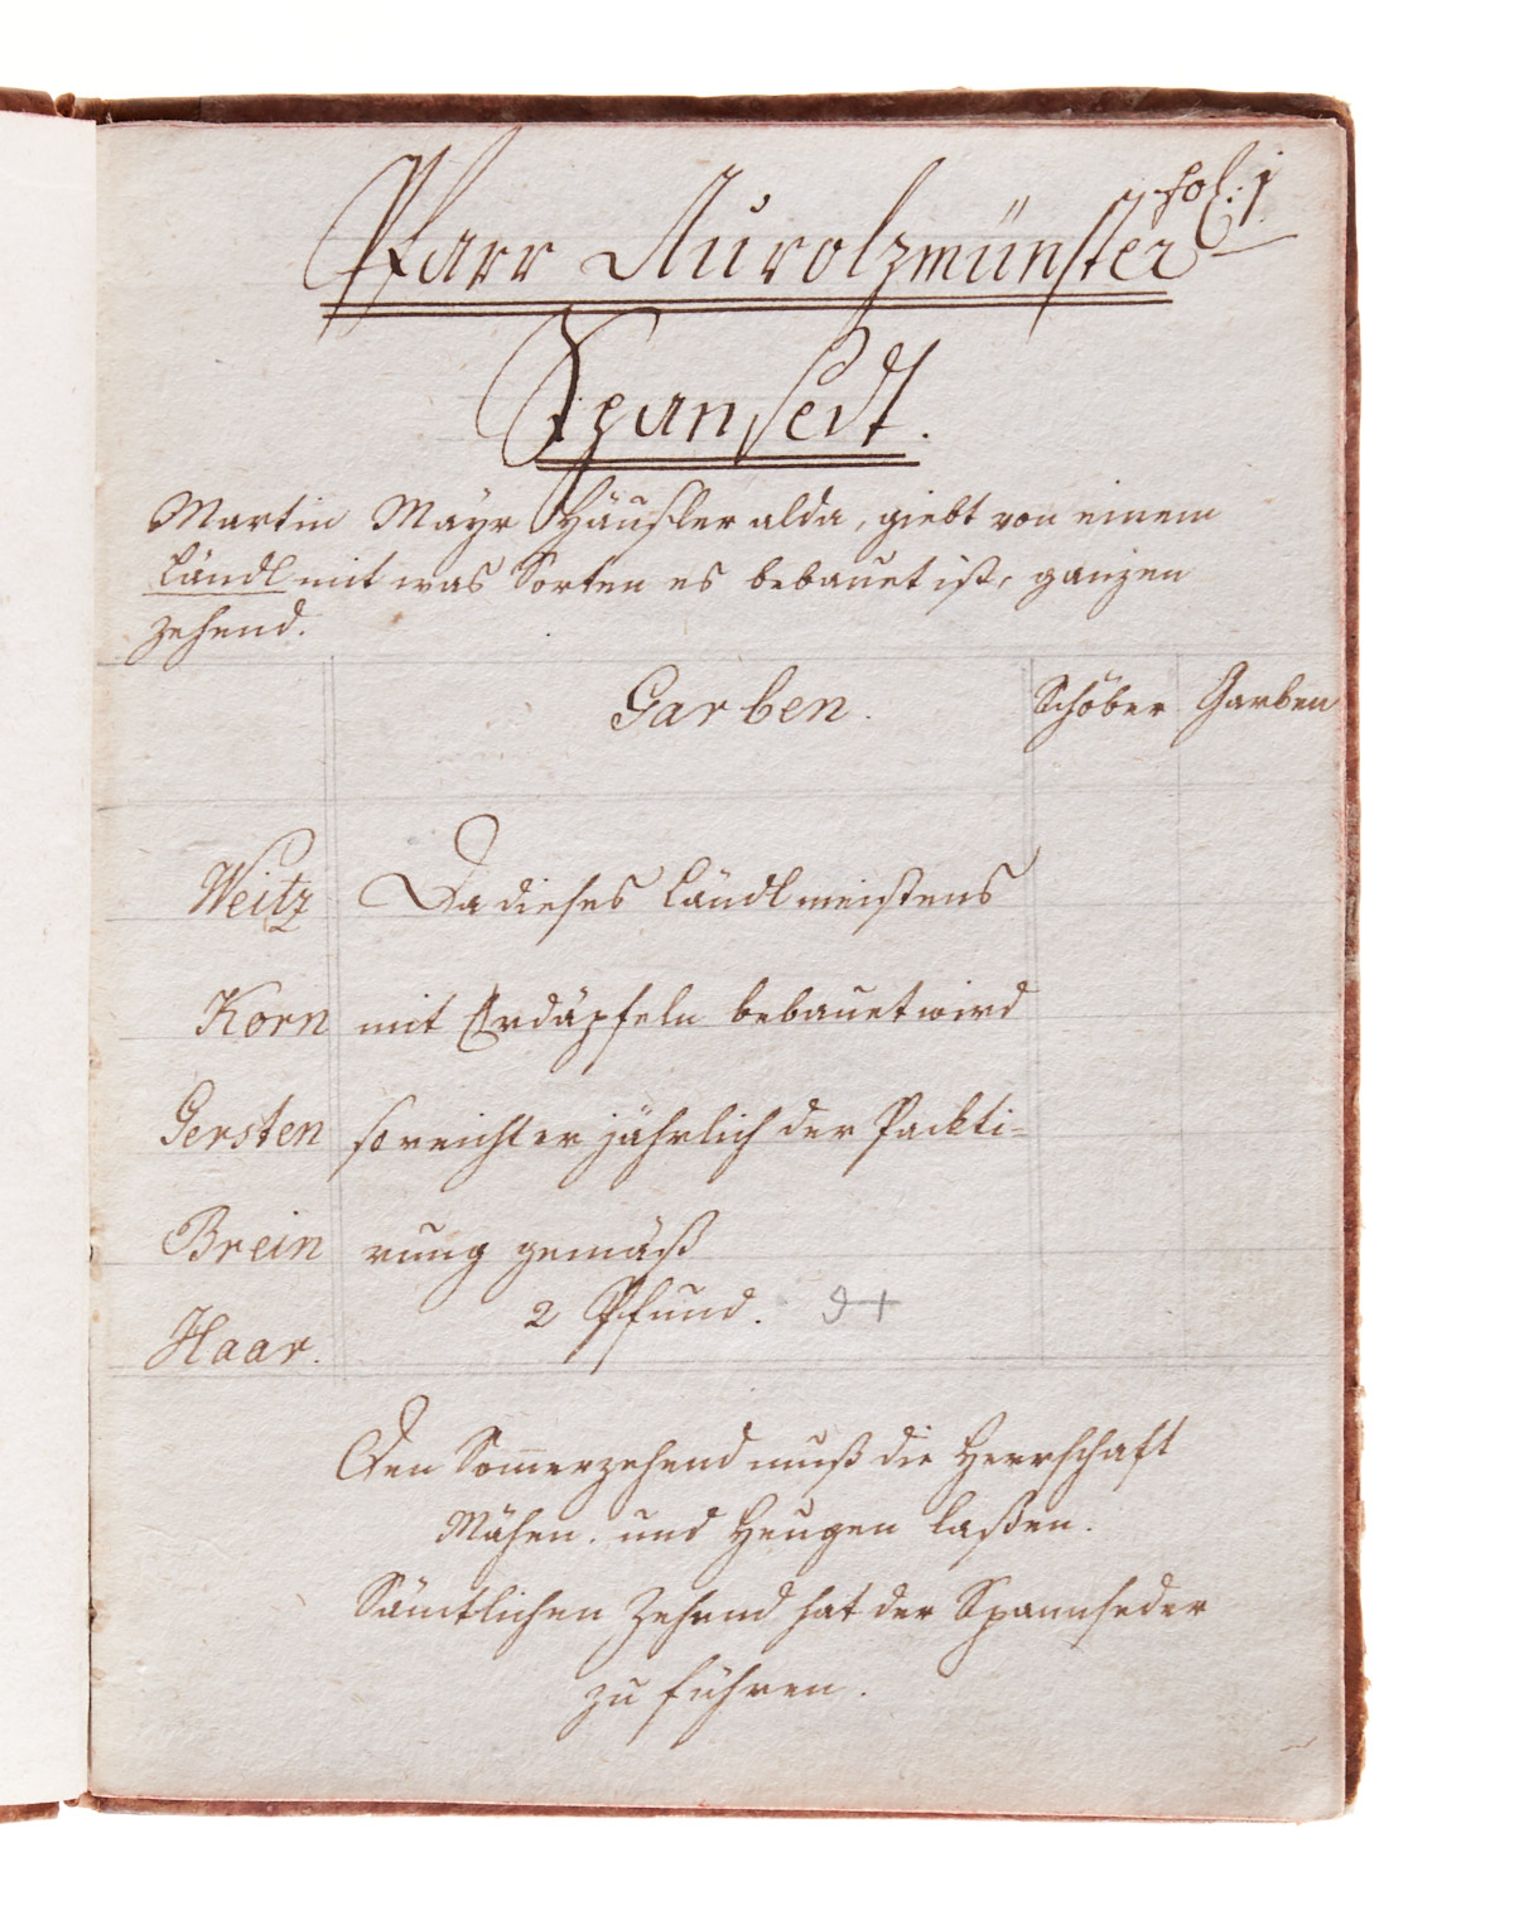 fol: 1
Pfarr Aurolzmünster
Spansedt.
Martin Mayr Häusler alda, giebt von einem
Ländl mit was Sorten es bebauet ist, ganzen
Zehend.
Garben. Schöber Garben
Weitz Da dieses Ländl meistens
Korn mit Erdäpfeln bebauet wird
Gersten so reicht er jährlich der Packti=
Brein rung gemäß
2 Pfund.
Haar.
Den Sommerzehend muß die Herrschaft
Mähen. und Heugen laßen.
Sämtlichen Zehend hat der Spannseder
zu führen.